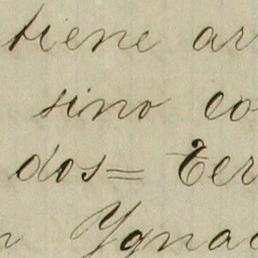 tiene ar
sino co
dos= Ter
n Ygnac